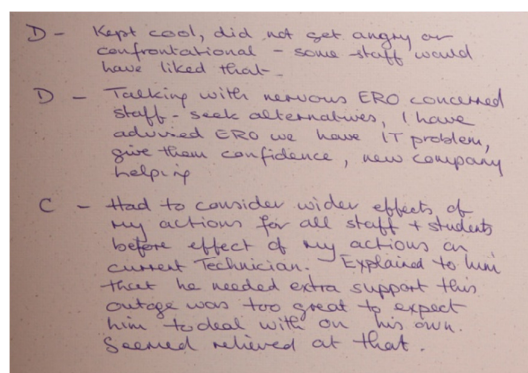 D - Kept cool, did not get angry or
confrontational - some staff would
have liked that -
D - Talking with nervous ERO concerned
staff - seek alternatives, I have
advised ERO we have IT problem,
give them confidence, new company
helping
C - Had to consider wider effects of
my actions for all staff + students
before effect of my actions on
current Technician. Explained to him
that he needed extra support this
outage was too great to expect
him to deal with on his own.
Seemed relieved at that.